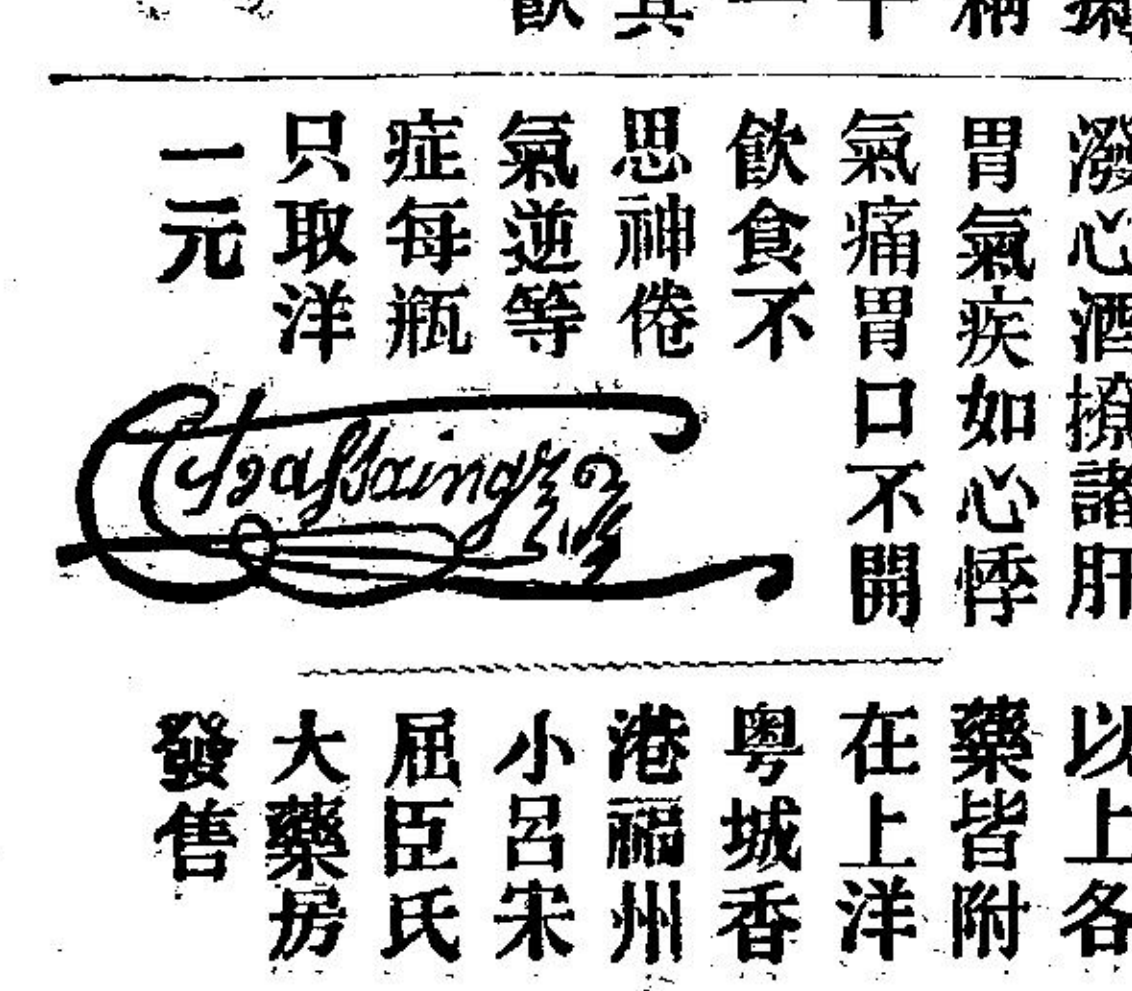 潑心酒撩諸肝
胃氣疾如心悸
氣痛胃口不開
飲食不
思神倦
氣逆等
症每瓶
只取洋
一元
Chassaing
以上各
藥皆附
在上洋
粵城香
港福州
小呂宋
屈臣氏
大藥房
發售